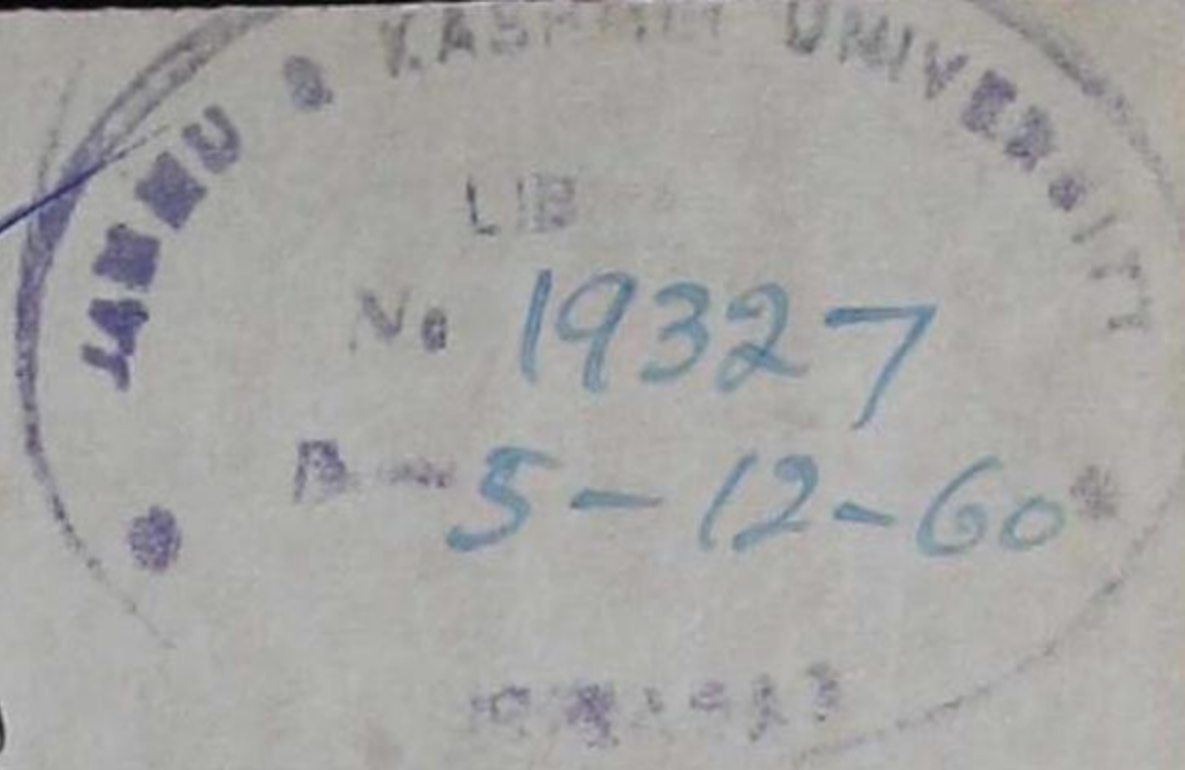 JAMMU & KASHMIR UNIVERSITY
LIB
No 19327
5-12-60